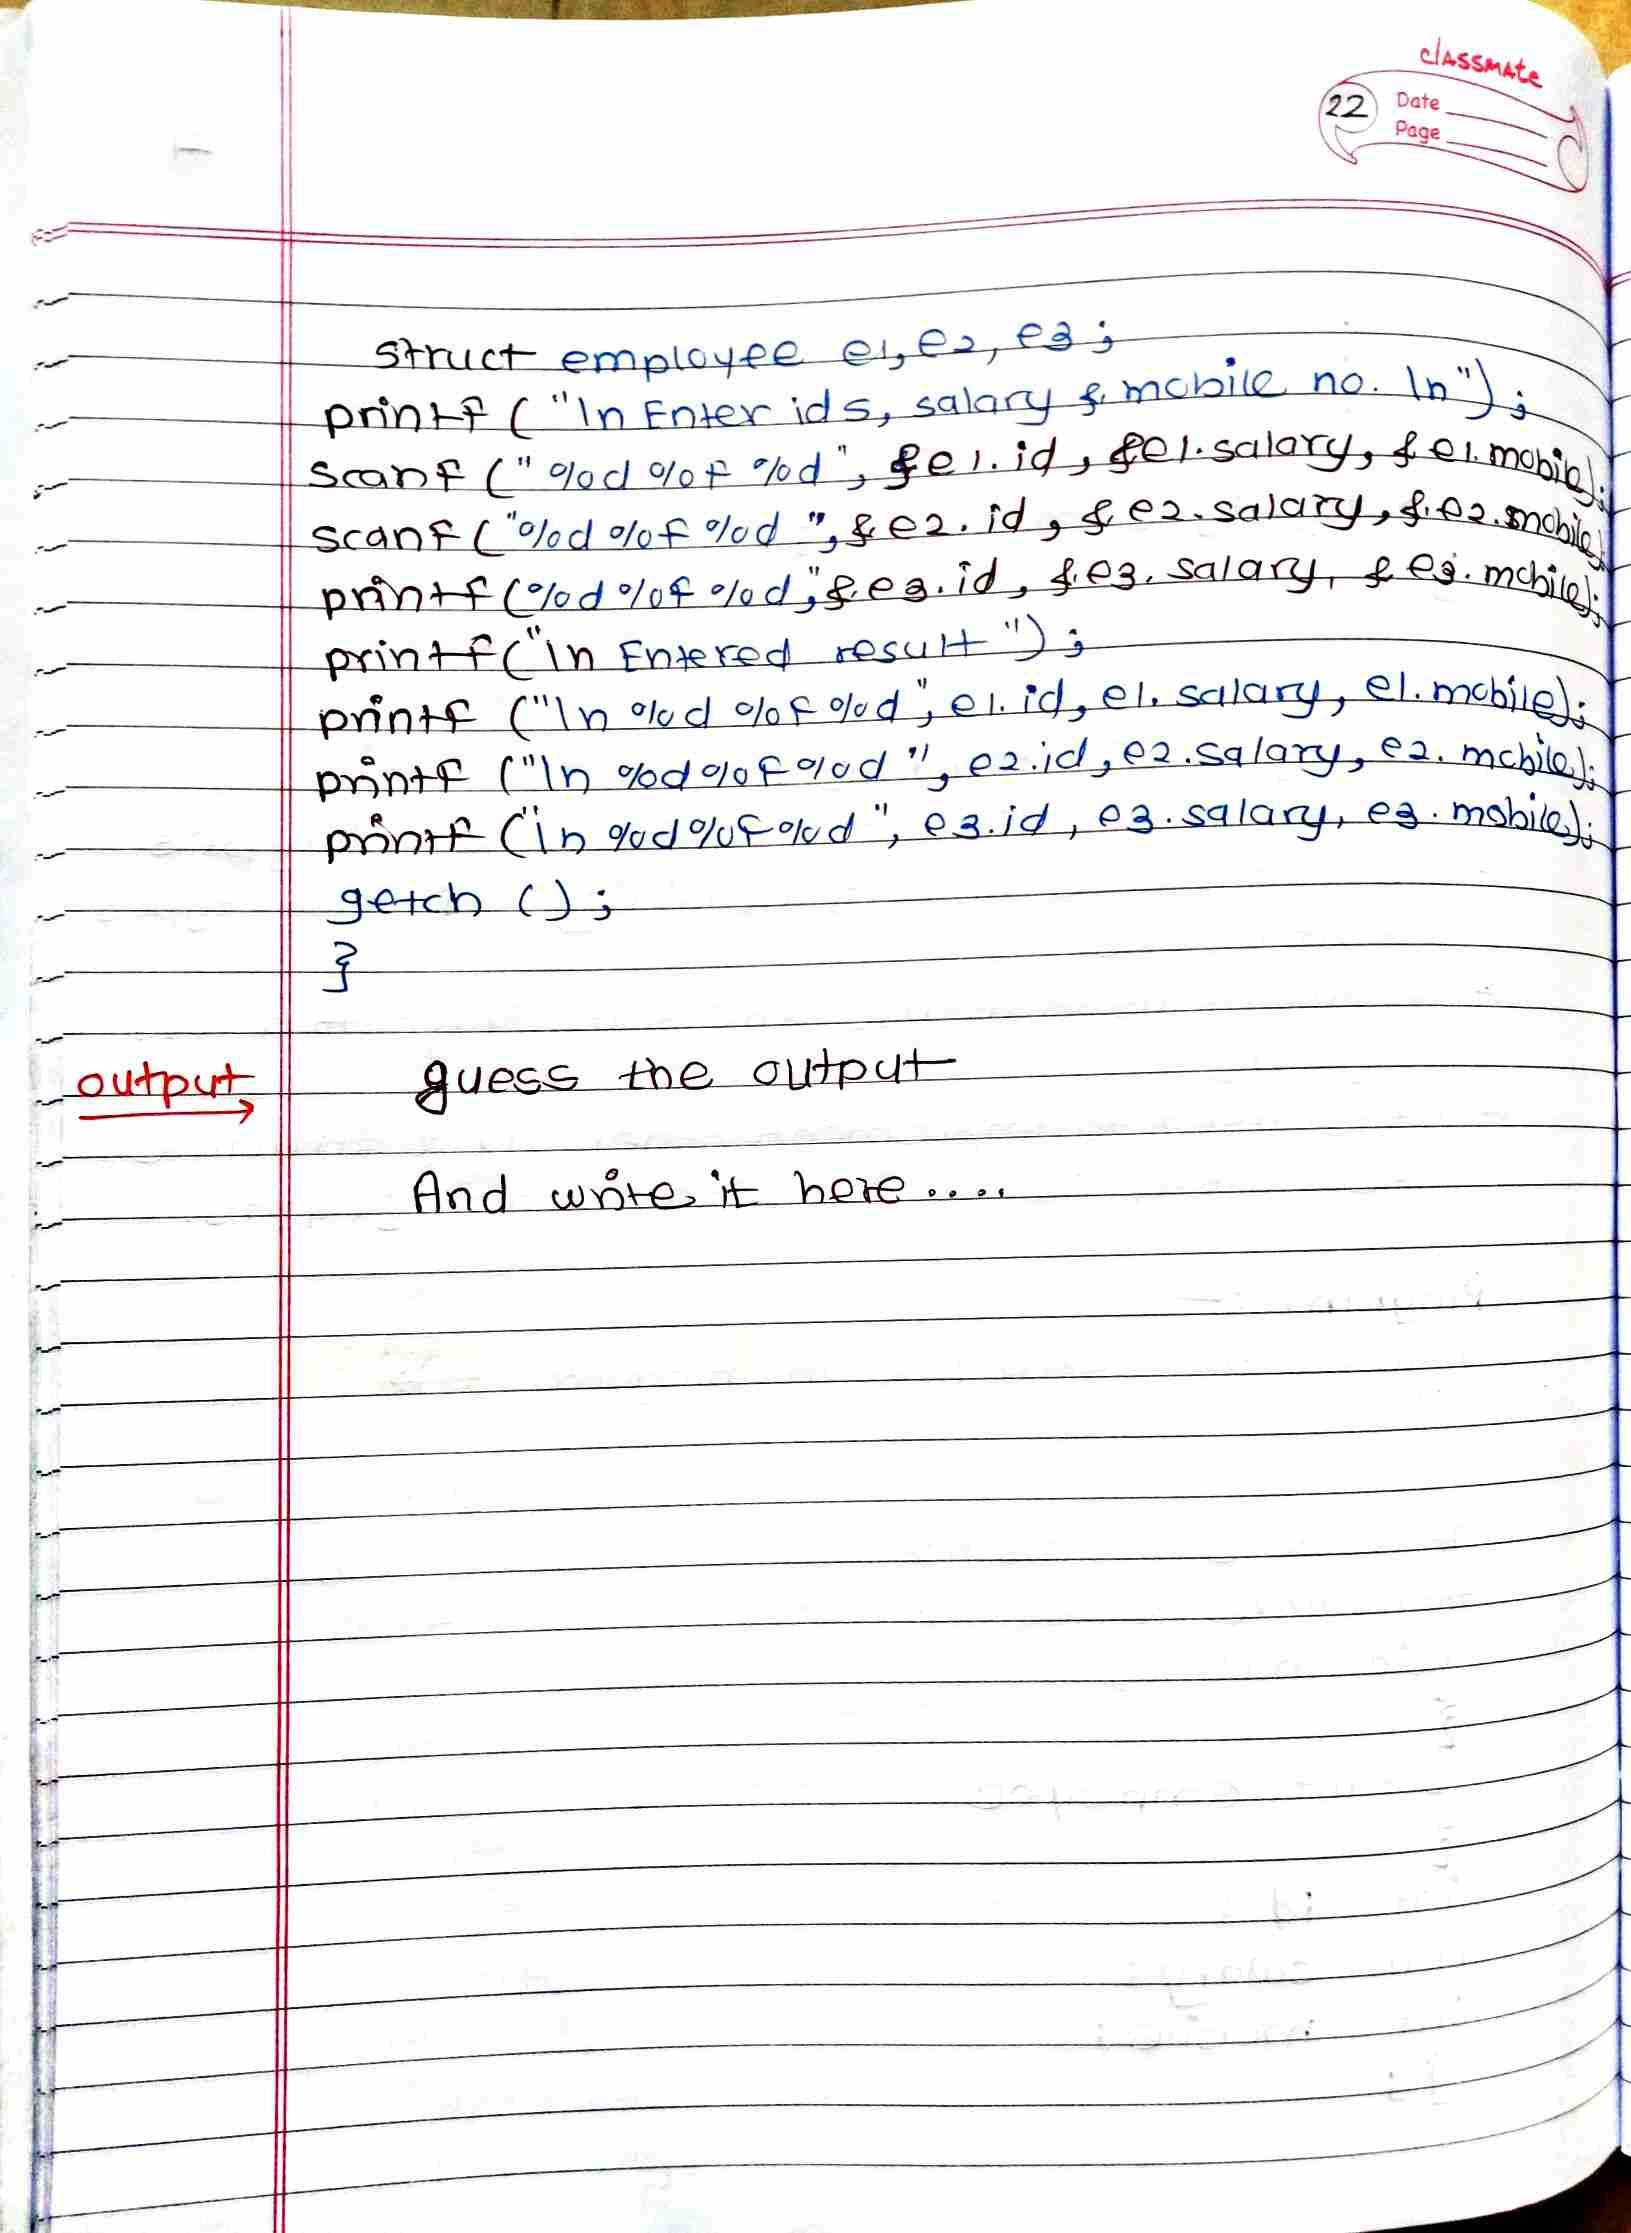 classmate
22
Date
Page
struct employee e1, e2, e3;
printf ("\n Enter ids, salary & mobile no. \n");
scanf ("%d %f %d", &e1.id, &e1.salary, &e1.mobile);
scanf ("%d %f %d", &e2.id, &e2.salary, &e2.mobile);
printf (%d %f %d", &e3.id, &e3.salary, &e3.mobile);
printf ("\n Entered result");
printf ("\n %d %f %d", e1.id, e1.salary, e1.mobile);
printf ("\n %d %f %d", e2.id, e2.salary, e2.mobile);
printf ("\n %d %f %d", e3.id, e3.salary, e3.mobile);
getch ();
}
output guess the output
And write it here....